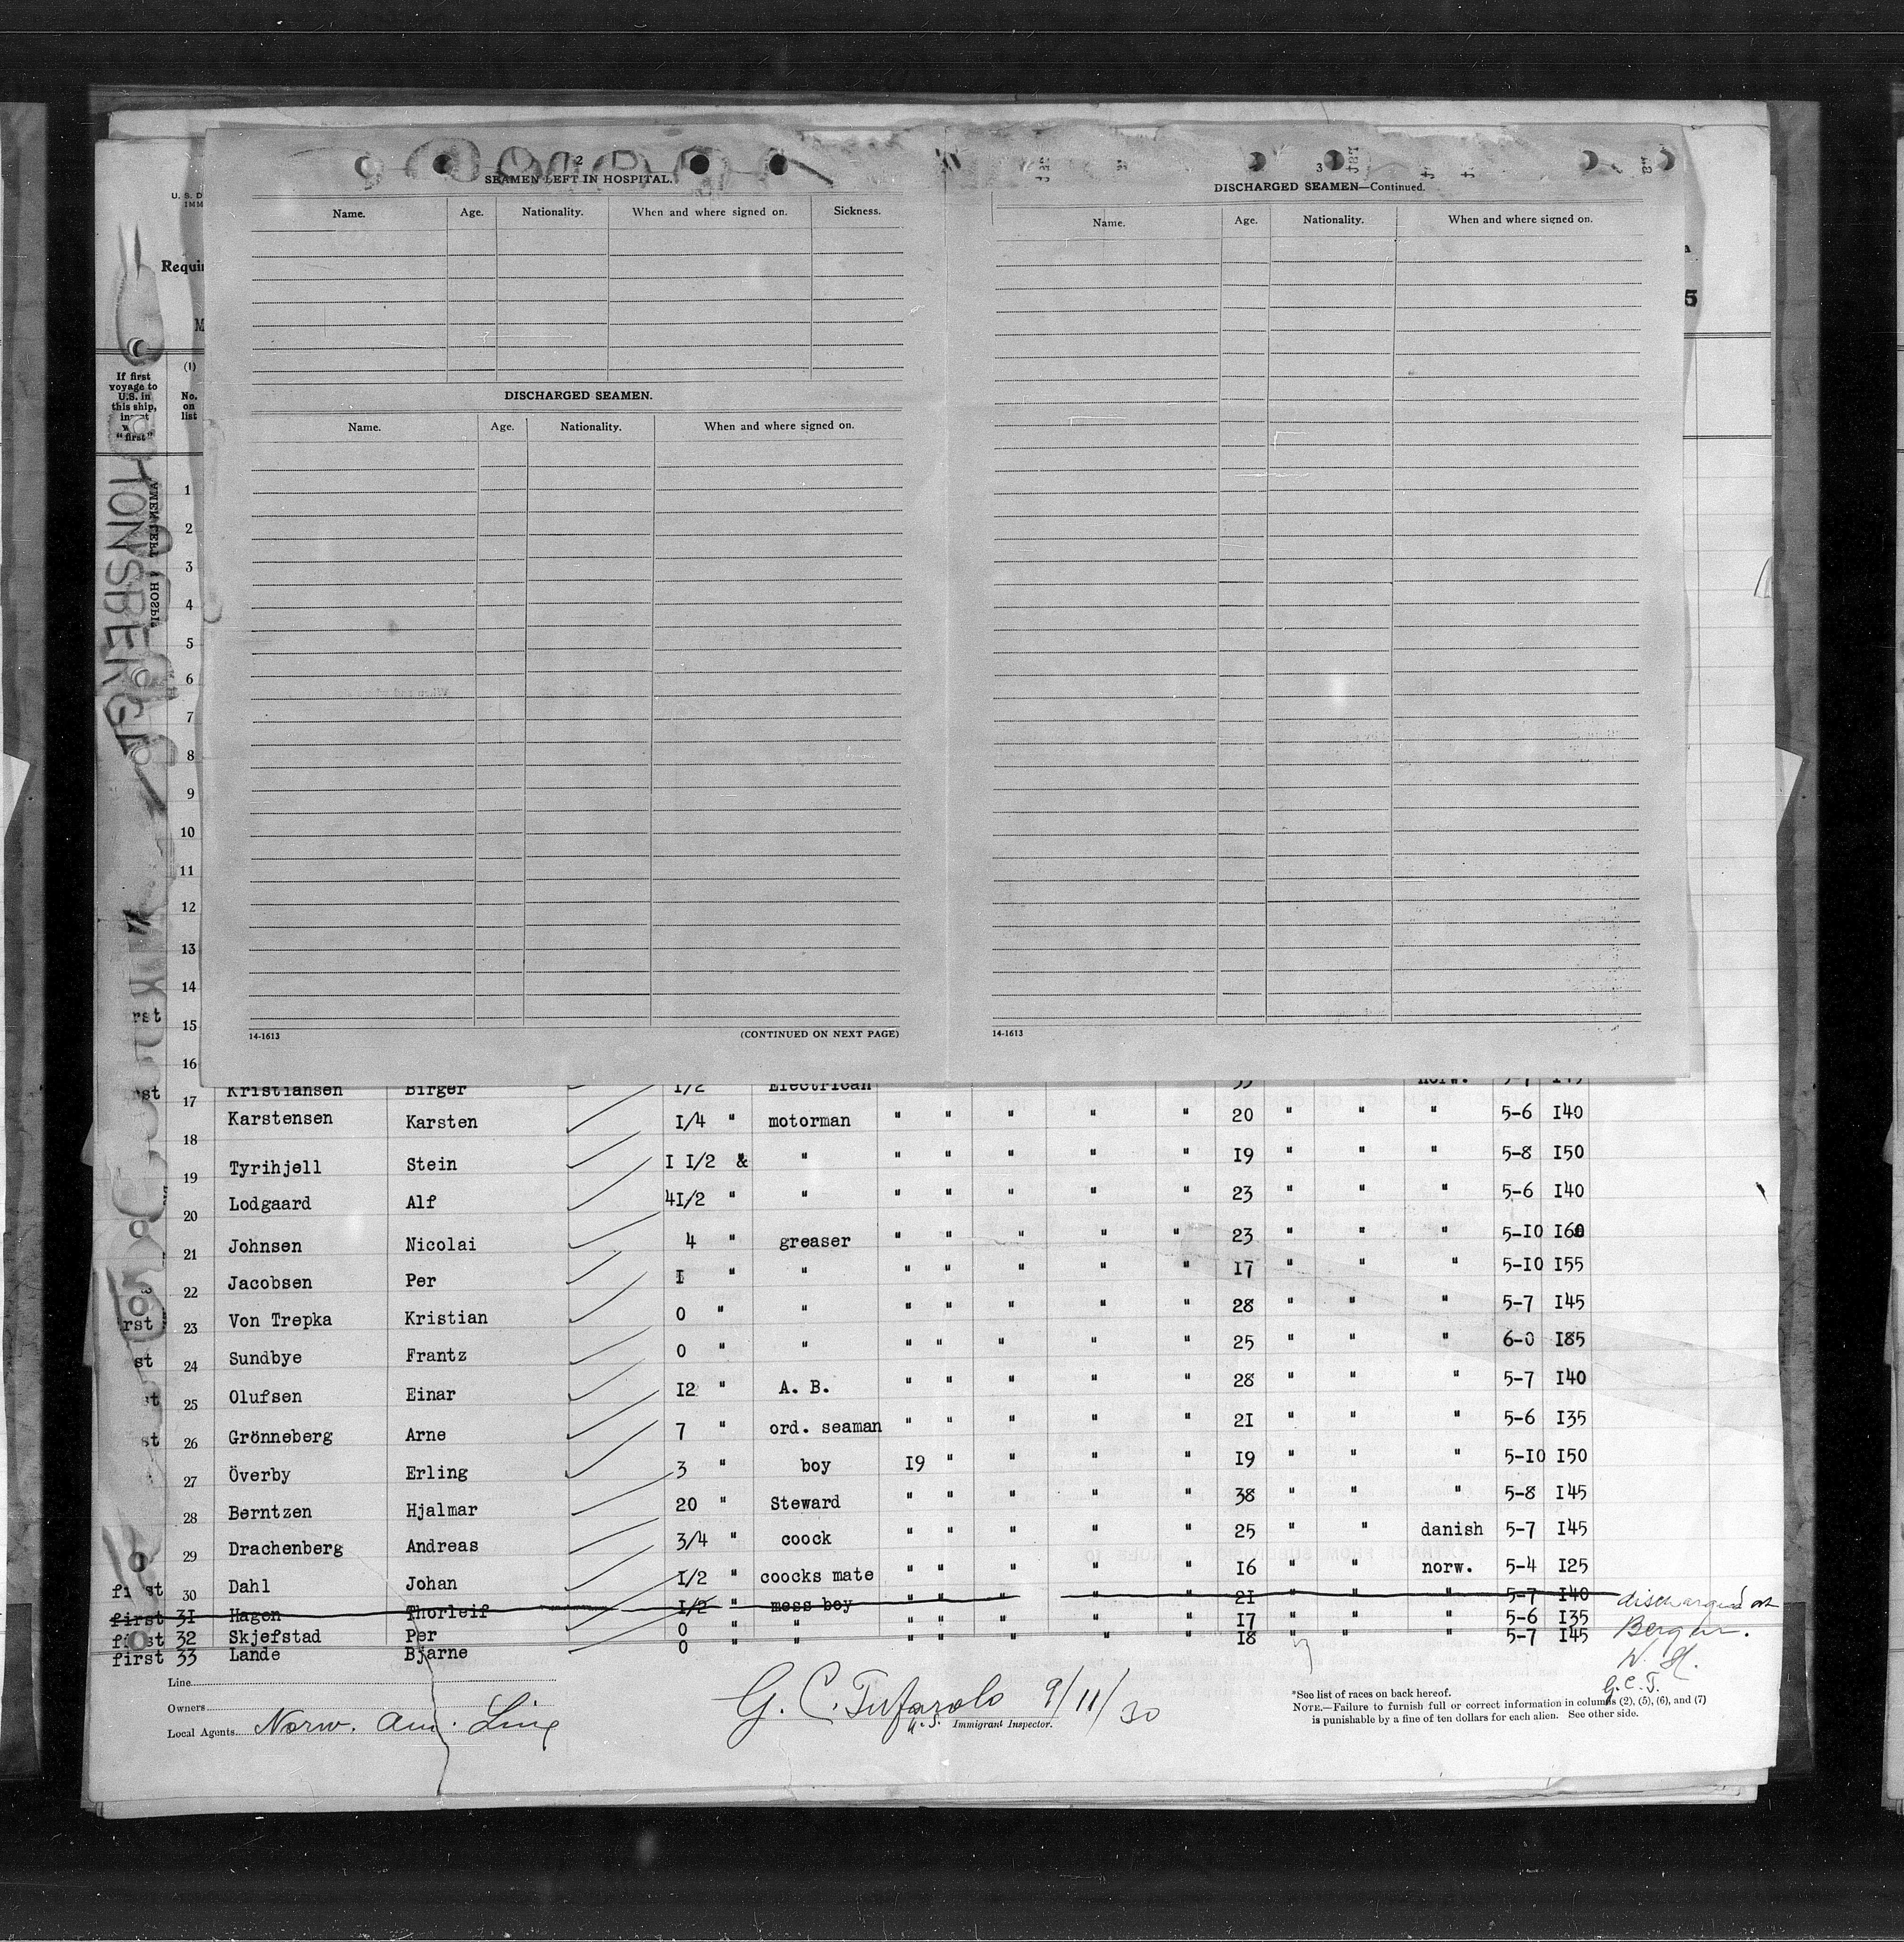 2
SEAMEN LEFT IN HOSPITAL.
Name. Age. Nationality. When and where signed on. Sickness.
DISCHARGED SEAMEN.
Name. Age. Nationality. When and where signed on.
14-1613 (CONTINUED ON NEXT PAGE)
3
DISCHARGED SEAMEN—Continued.
Name. Age. Nationality. When and where signed on.
14-1613
U. S. D
IMM
Requi
M
5
If first
voyage to
U.S. in
this ship,
"first"
(1)
No.
on
list
TONSBERG
1
2
3
4
5
6
7
8
9
10
11
12
13
14
rst
15
16
st 17 Kristiansen Birger 1/2 Electrican 33 norw. 5-7 145
18 Karstensen Karsten 1/4 " motorman " " " " " 20 " " " 5-6 140
19 Tyrihjell Stein 1 1/2 & " " " " " " 19 " " " 5-8 150
20 Lodgaard Alf 41/2 " " " " " " " 23 " " " 5-6 140
21 Johnsen Nicolai 4 " greaser " " " " " 23 " " " 5-10 160
22 Jacobsen Per 1 " " " " " " " 17 " " " 5-10 155
rst 23 Von Trepka Kristian 0 " " " " " " " 28 " " " 5-7 145
st 24 Sundbye Frantz 0 " " " " " " " 25 " " " 6-0 185
st 25 Olufsen Einar 12 " A. B. " " " " " 28 " " " 5-7 140
st 26 Grönneberg Arne 7 " ord. seaman " " " " " 21 " " " 5-6 135
27 Överby Erling 3 " boy 19 " " " " 19 " " " 5-10 150
28 Berntzen Hjalmar 20 " Steward " " " " " 38 " " " 5-8 145
29 Drachenberg Andreas 3/4 " coock " " " " " 25 " " danish 5-7 145
first 30 Dahl Johan 1/2 " coocks mate " " " " " 16 " " norw. 5-4 125
first 31 Hagen Thorleif 1/2 " mess boy " " " " " 21 " " " 5-7 140 discharged at
first 32 Skjefstad Per 0 " " " " " " " 17 " " " 5-6 135 Bergen.
first 33 Lande Bjarne 0 " " " " " " " 18 " " " 5-7 145
W. H.
G.C.T.
Line
Owners
Local Agents Norw. Am. Line
G. C. Tufarolo 9/11/30
U.S. Immigrant Inspector.
*See list of races on back hereof.
NOTE.—Failure to furnish full or correct information in columns (2), (5), (6), and (7)
is punishable by a fine of ten dollars for each alien. See other side.